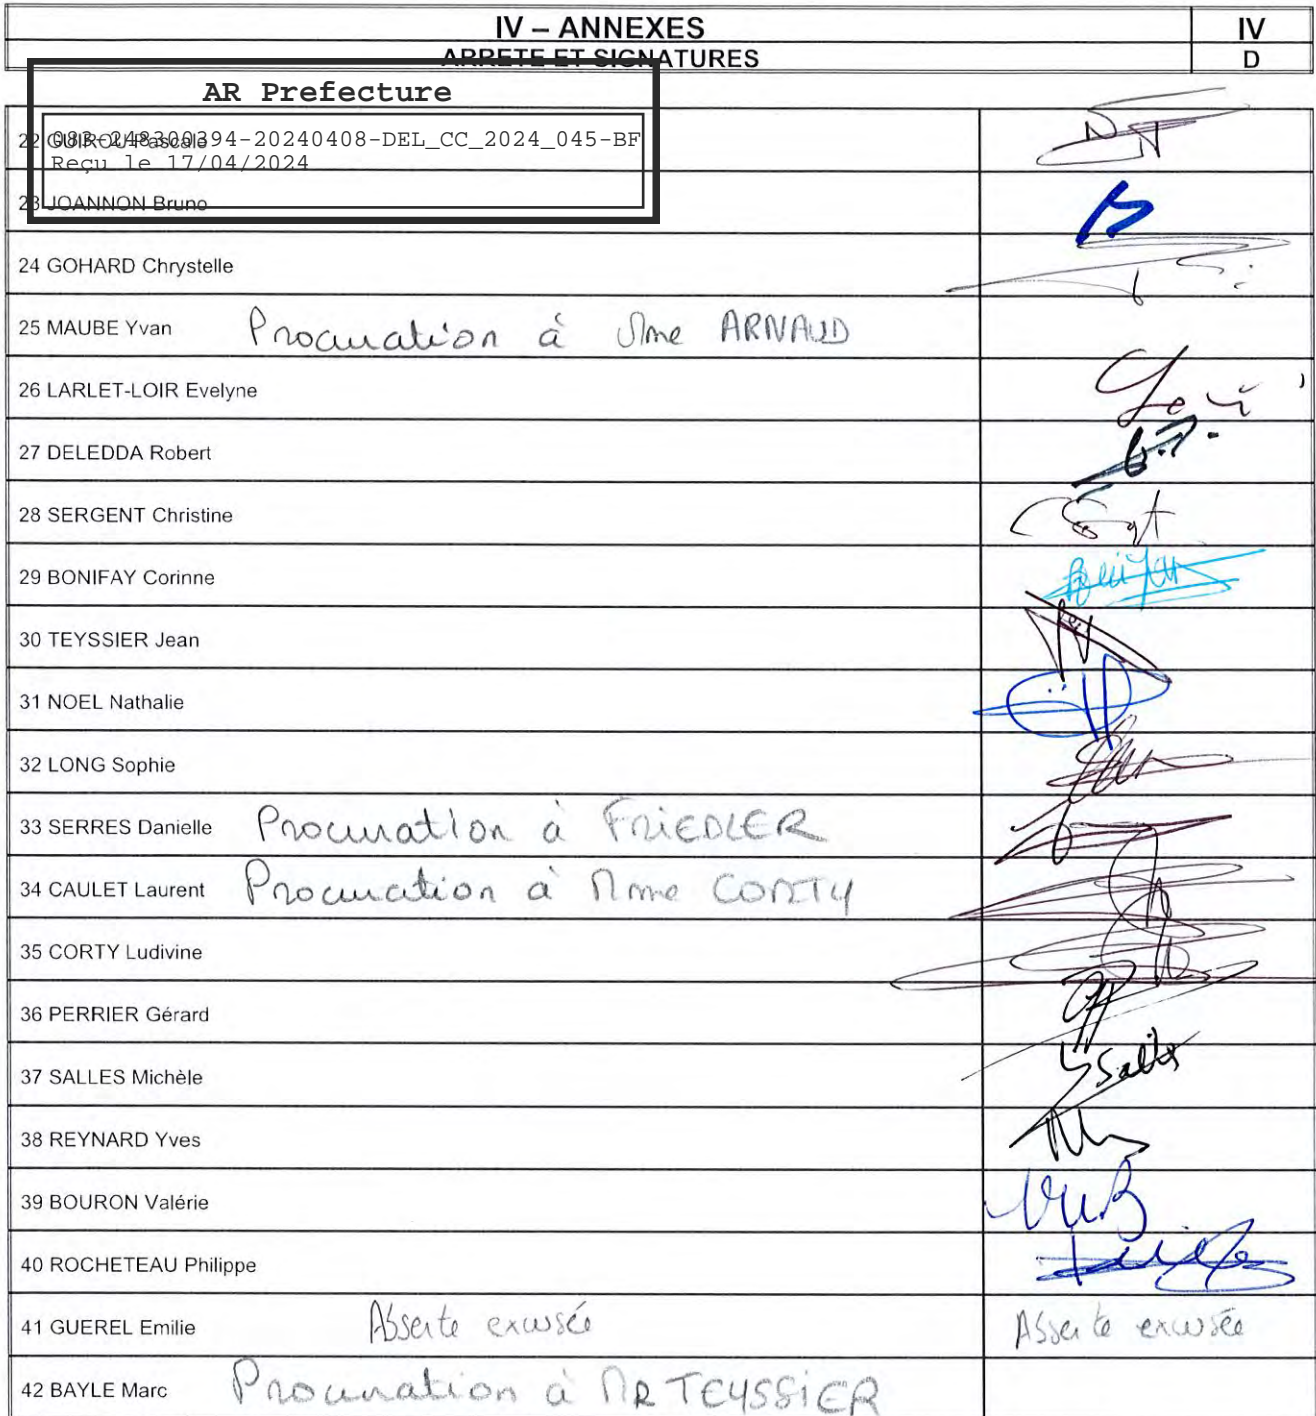 IV – ANNEXES IV
ARRETE ET SIGNATURES D
AR Prefecture
083-248300394-20240408-DEL_CC_2024_045-BF
Reçu le 17/04/2024
22 GUIROU Pascale
23 JOANNON Bruno
24 GOHARD Chrystelle
25 MAUBE Yvan Procuration à Mme ARNAUD
26 LARLET-LOIR Evelyne
27 DELEDDA Robert
28 SERGENT Christine
29 BONIFAY Corinne
30 TEYSSIER Jean
31 NOEL Nathalie
32 LONG Sophie
33 SERRES Danielle Procuration à FRIEDLER
34 CAULET Laurent Procuration à Mme CORTY
35 CORTY Ludivine
36 PERRIER Gérard
37 SALLES Michèle
38 REYNARD Yves
39 BOURON Valérie
40 ROCHETEAU Philippe
41 GUEREL Emilie Absente excusée Absente excusée
42 BAYLE Marc Procuration à MR TEYSSIER